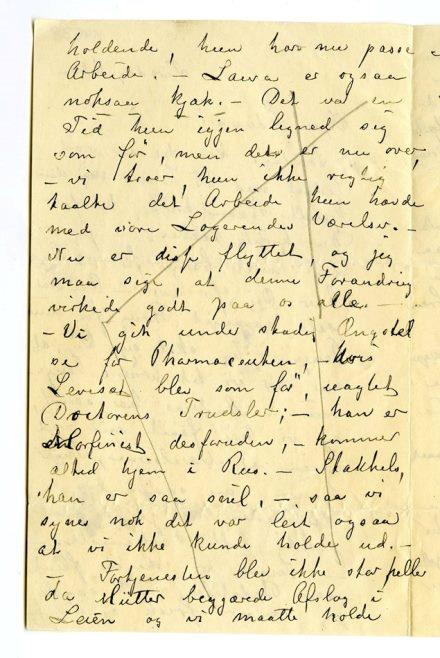 holdende, hun har nu passe
Arbeide. – Laura er ogsaa
noksaa kjæk. – Det var en
Tid hun igjen lignede sig
som før, men det er nu over,
– vi troer, hun ikke rigtig
taalte det Arbeide hun havde
med vore Logerendes Værelser. –
Nu er disse flyttet, og jeg
maa sige, at denne Forandring
virkede godt paa os alle. –
– Vi gik under stadig
se for Pharmaceuten, – hvis
Levisæt blev som før, uagtet
Doctorens Trudsler; – han er
Morfinist desforuden, – kommer
altid hjem i Rus. – Stakkels,
han er saa snil, – saa vi
synes nok det var leit ogsaa
at vi ikke kunde holde ud. –
– Fortjenesten blev ikke stor heller
da Mütter begjærede Afslag i
Leien og vi maatte holde